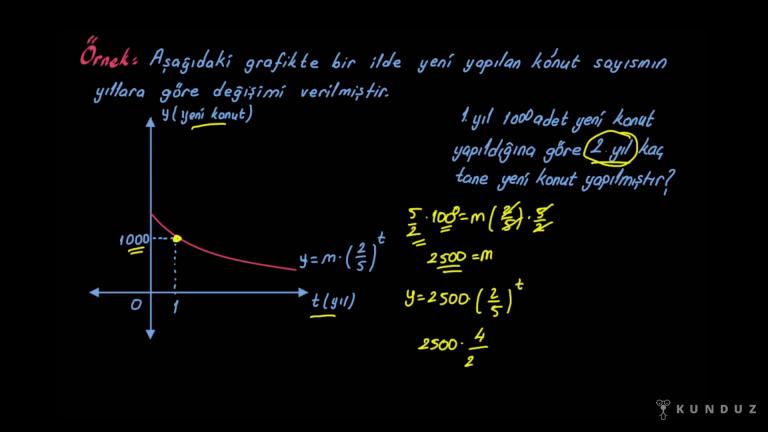 Örnek: Aşağıdaki grafikte bir ilde yeni yapılan konut sayısının
yıllara göre değişimi verilmiştir.
y (yeni konut)
1. yıl 1000 adet yeni konut
yapıldığına göre 2. yıl kaç
tane yeni konut yapılmıştır?
1000
y = m · (2/5)^t
0
1
t (yıl)
5/2 · 1000 = m (2/5) · 5/2
2500 = m
y = 2500 · (2/5)^t
2500 · 4/2
KUNDUZ